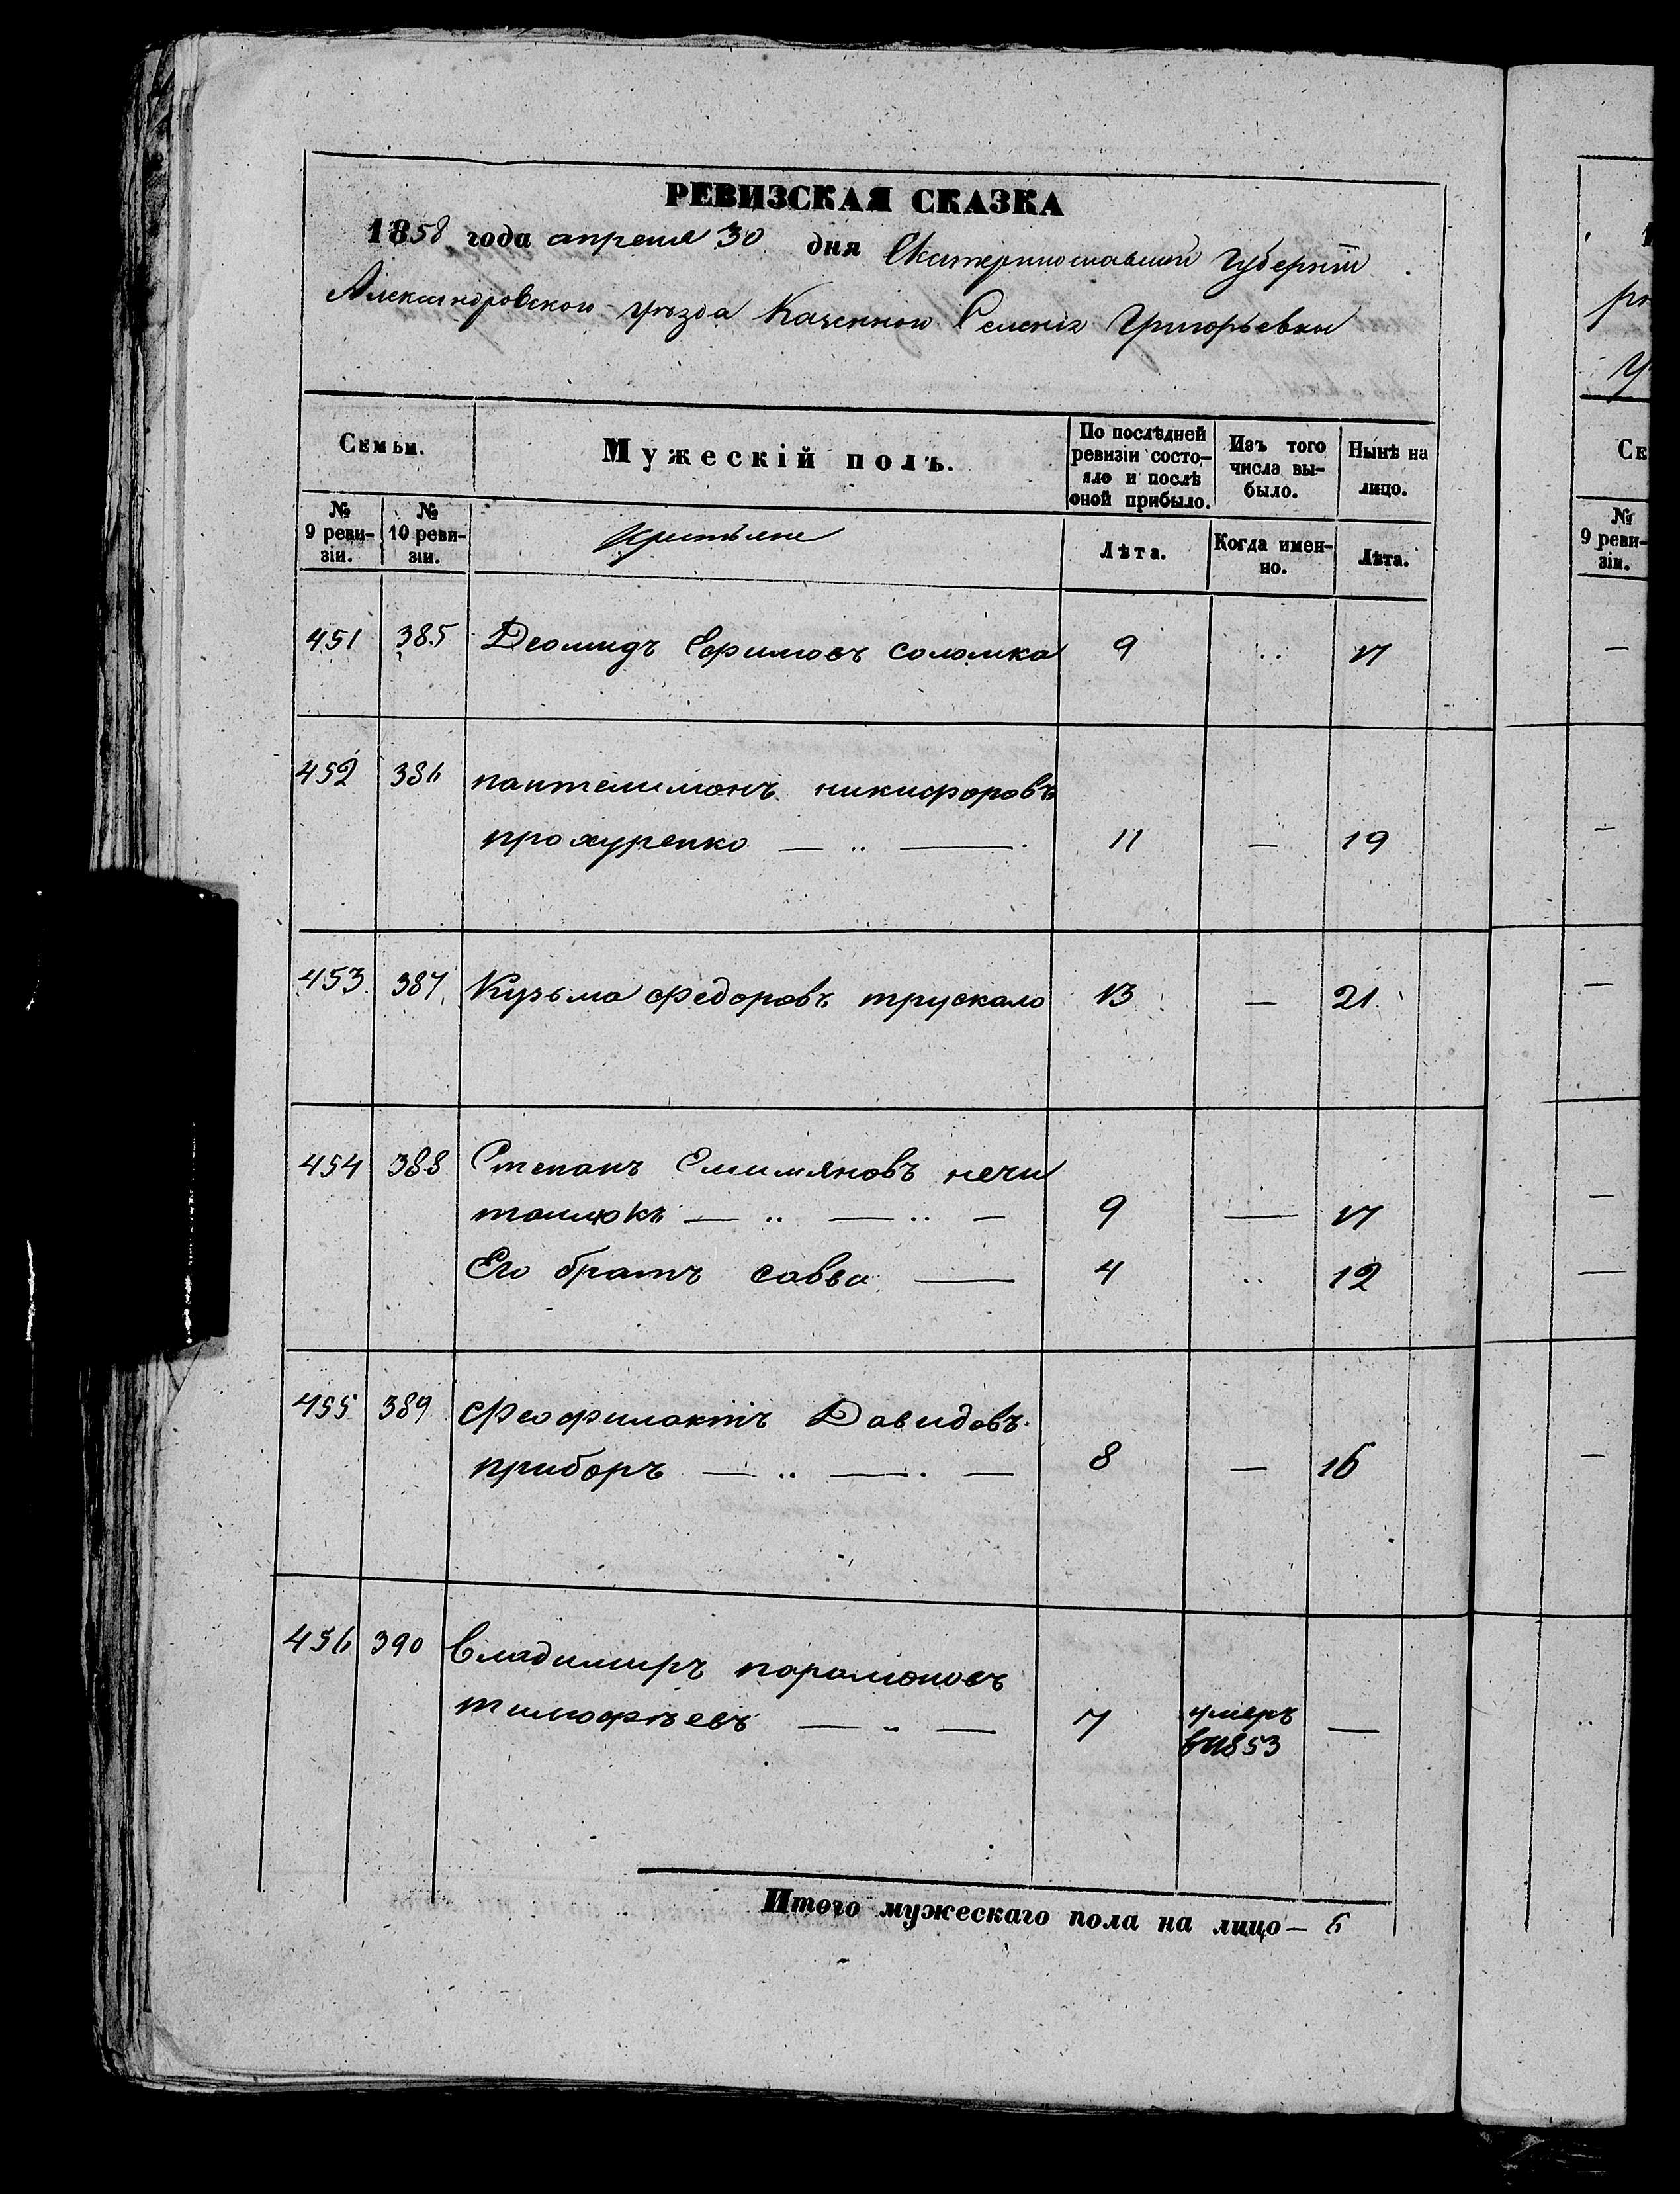 РЕВИЗСКАЯ СКАЗКА
1858 года апреля 30 дня Екатеринославской Губернiи
Александровского уѣзда Казенной Селенiя Григорьевки
Семьи.
Мужескiй полъ.
По послѣдней ревизiи состо-
яло и послѣ оной прибыло.
Изъ того числа вы-
было.
Нынѣ на лицо.
№ 9 реви-
зiи.
№ 10 реви-
зiи.
Крестьяне
Лѣта.
Когда имен-
но.
Лѣта.
451 385 Деомидъ Ефимовъ соломка 9 .. 17
452 386 пантелимонъ никифоровъ
прохуренко — .. — 11 — 19
453. 387. Кузьма федоровъ трускало 13 — 21
454 388 Степанъ Емимяновъ нечи
тайлюкъ — .. — .. — 9 — 17
Его братъ савва — 4 .. 12
455 389 Феофилактъ Давидовъ
приборъ — .. — . — 8 — 16
456 390 Владимиръ парамоновъ
тимофѣевъ — .. — 7 умеръ —
в 1853
Итого мужескаго пола на лицо — 6
№ 9 реви-
зiи.